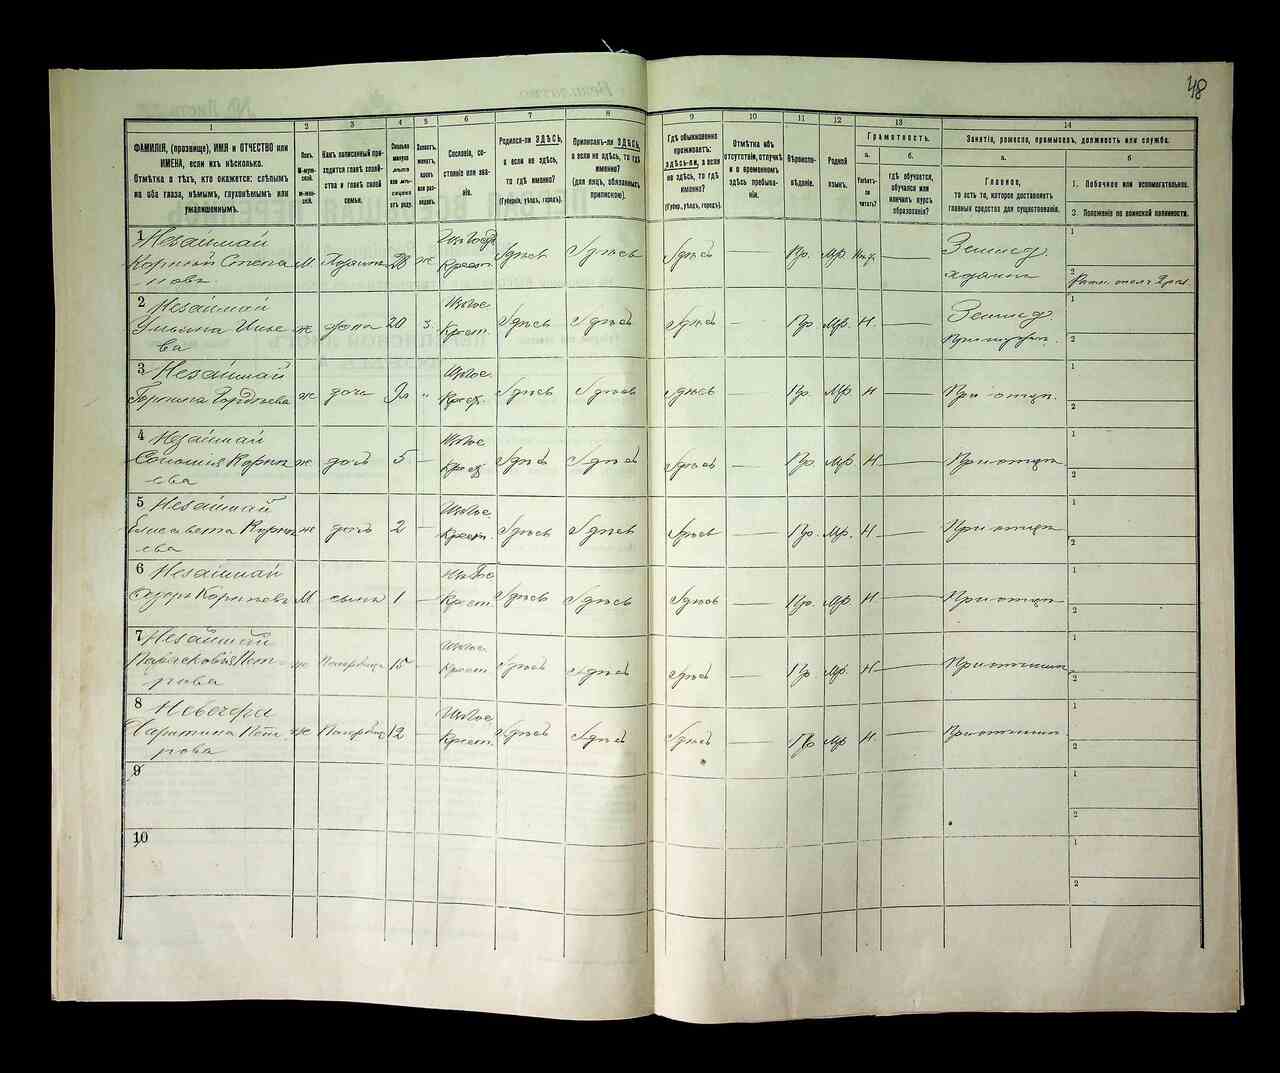 48
1
2
3
4
5
6
7
8
9
10
11
12
13
14
ФАМИЛІЯ, (прозвище), ИМЯ и ОТЧЕСТВО или
ИМЕНА, если ихъ нѣсколько.
Отмѣтка о тѣхъ, кто окажется: слѣпымъ
на оба глаза, нѣмымъ, глухонѣмымъ или
умалишеннымъ.
Полъ.
М-муж-
ской.
Ж-жен-
скій.
Какъ записанный при-
ходится главѣ хозяй-
ства и главѣ своей
семьи.
Сколько
минуло
лѣтъ
или мѣ-
сяцевъ
отъ роду.
Холостъ,
женатъ,
вдовъ
или раз-
веденъ.
Сословіе, со-
стояніе или зва-
ніе.
Родился-ли ЗДѢСЬ,
а если не здѣсь,
то гдѣ именно?
(Губернія, уѣздъ, городъ).
Приписанъ-ли ЗДѢСЬ,
а если не здѣсь, то гдѣ
именно?
(для лицъ, обязанныхъ
припискою).
Гдѣ обыкновенно
проживаетъ:
здѣсь-ли, а если
не здѣсь, то гдѣ
именно?
(Губер., уѣздъ, городъ).
Отмѣтка объ
отсутствіи, отлучкѣ
и о временномъ
здѣсь пребыва-
ніи.
Вѣроиспо-
вѣданіе.
Родной
языкъ.
Грамотность.
а.
б.
Умѣетъ-
ли
читать?
гдѣ обучается,
обучался или
кончилъ курсъ
образованія?
Занятіе, ремесло, промыселъ, должность или служба.
а.
б
Главное,
то есть то, которое доставляетъ
главныя средства для существованія.
1. Побочное или вспомогательное.
2. Положеніе по воинской повинности.
1 Незаймай
Корній Степа
новъ М Хозяинъ 28 ж Крест. Здѣсь Здѣсь Здѣсь — Пр. Мр. — Землед. 1
хозяинъ 2
2 Незаймай
ва ж жена 20 з. Крест. Здѣсь Здѣсь Здѣсь — Пр. Мр. Н. — Землед. 1
При мужѣ. 2
3 Незаймай
Гордѣева ж дочь Крест. Здѣсь Здѣсь Здѣсь — Пр. Мр. Н — При отцѣ. 1
2
4 Незаймай
Соломія Корни
ева ж дочь 5 — Крест. Здѣсь Здѣсь Здѣсь — Пр. Мр. Н — При отцѣ 1
2
5 Незаймай
Елисавета Корни
ева ж дочь 2 — Крест. Здѣсь Здѣсь Здѣсь — Пр. Мр. Н — При отцѣ 1
2
6 Незаймай
Корніевъ М сынъ 1 — Крест. Здѣсь Здѣсь Здѣсь — Пр. Мр. Н — При отцѣ 1
2
7 Незаймай
Парасковія Пет-
рова ж 15 — Крест Здѣсь Здѣсь Здѣсь — Пр. Мр. Н — 1
2
8
Харитина Пет
рова ж 12 — Крест. Здѣсь Здѣсь Здѣсь — Пр Мр Н. — 1
2
9
1
2
10
1
2